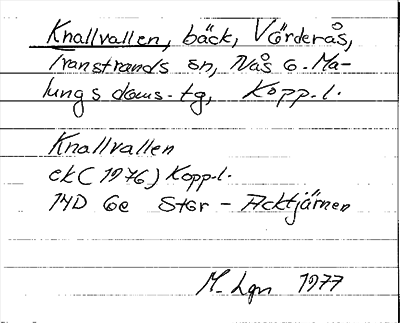 Knallvallen, bäck, Vörderås,
Transtrands sn, Nås o. Ma-
lungs doms.tg, Kopp.l.
Knallvallen
ek (1976) Kopp.l.
14D 6e Stor-Acktjärnen
M. Lgn 1977